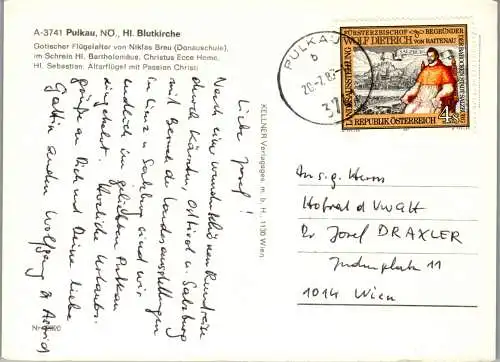 A-3741 Pulkau, NÖ., Hl. Blutkirche
Gotischer Flügelalter von Niklas Breu (Donauschule),
im Schrein Hl. Bartholomäus, Christus Ecce Homo,
Hl. Sebastian. Altarflügel mit Passion Christi
Liebe Josef!
Nach einer wunderschönen Rundreise
durch Kärnten, Osttirol u. Salzburg
mit Besuch der Landesausstellungen
in Linz u Salzburg sind wir
endlich im geliebten Pulkau
eingekehrt. Herzliche Urlaubs-
grüße an Dich und Deine liebe
Gattin senden Wolfgang u Astrid
Nr.
KELLNER Verlagsges. m. b. H., 1130 Wien
PULKAU
b
37
FÜRSTERZBISCHOF BEGRÜNDER
WOLF DIETRICH VON RAITENAU
DER BAROCKEN STADT SALZBURG
LANDESAUSSTELLUNG
REPUBLIK ÖSTERREICH
S 4
An s.g. Herrn
Hofrat d VwGH
Dr Josef DRAXLER
Judenplatz 11
1014 Wien